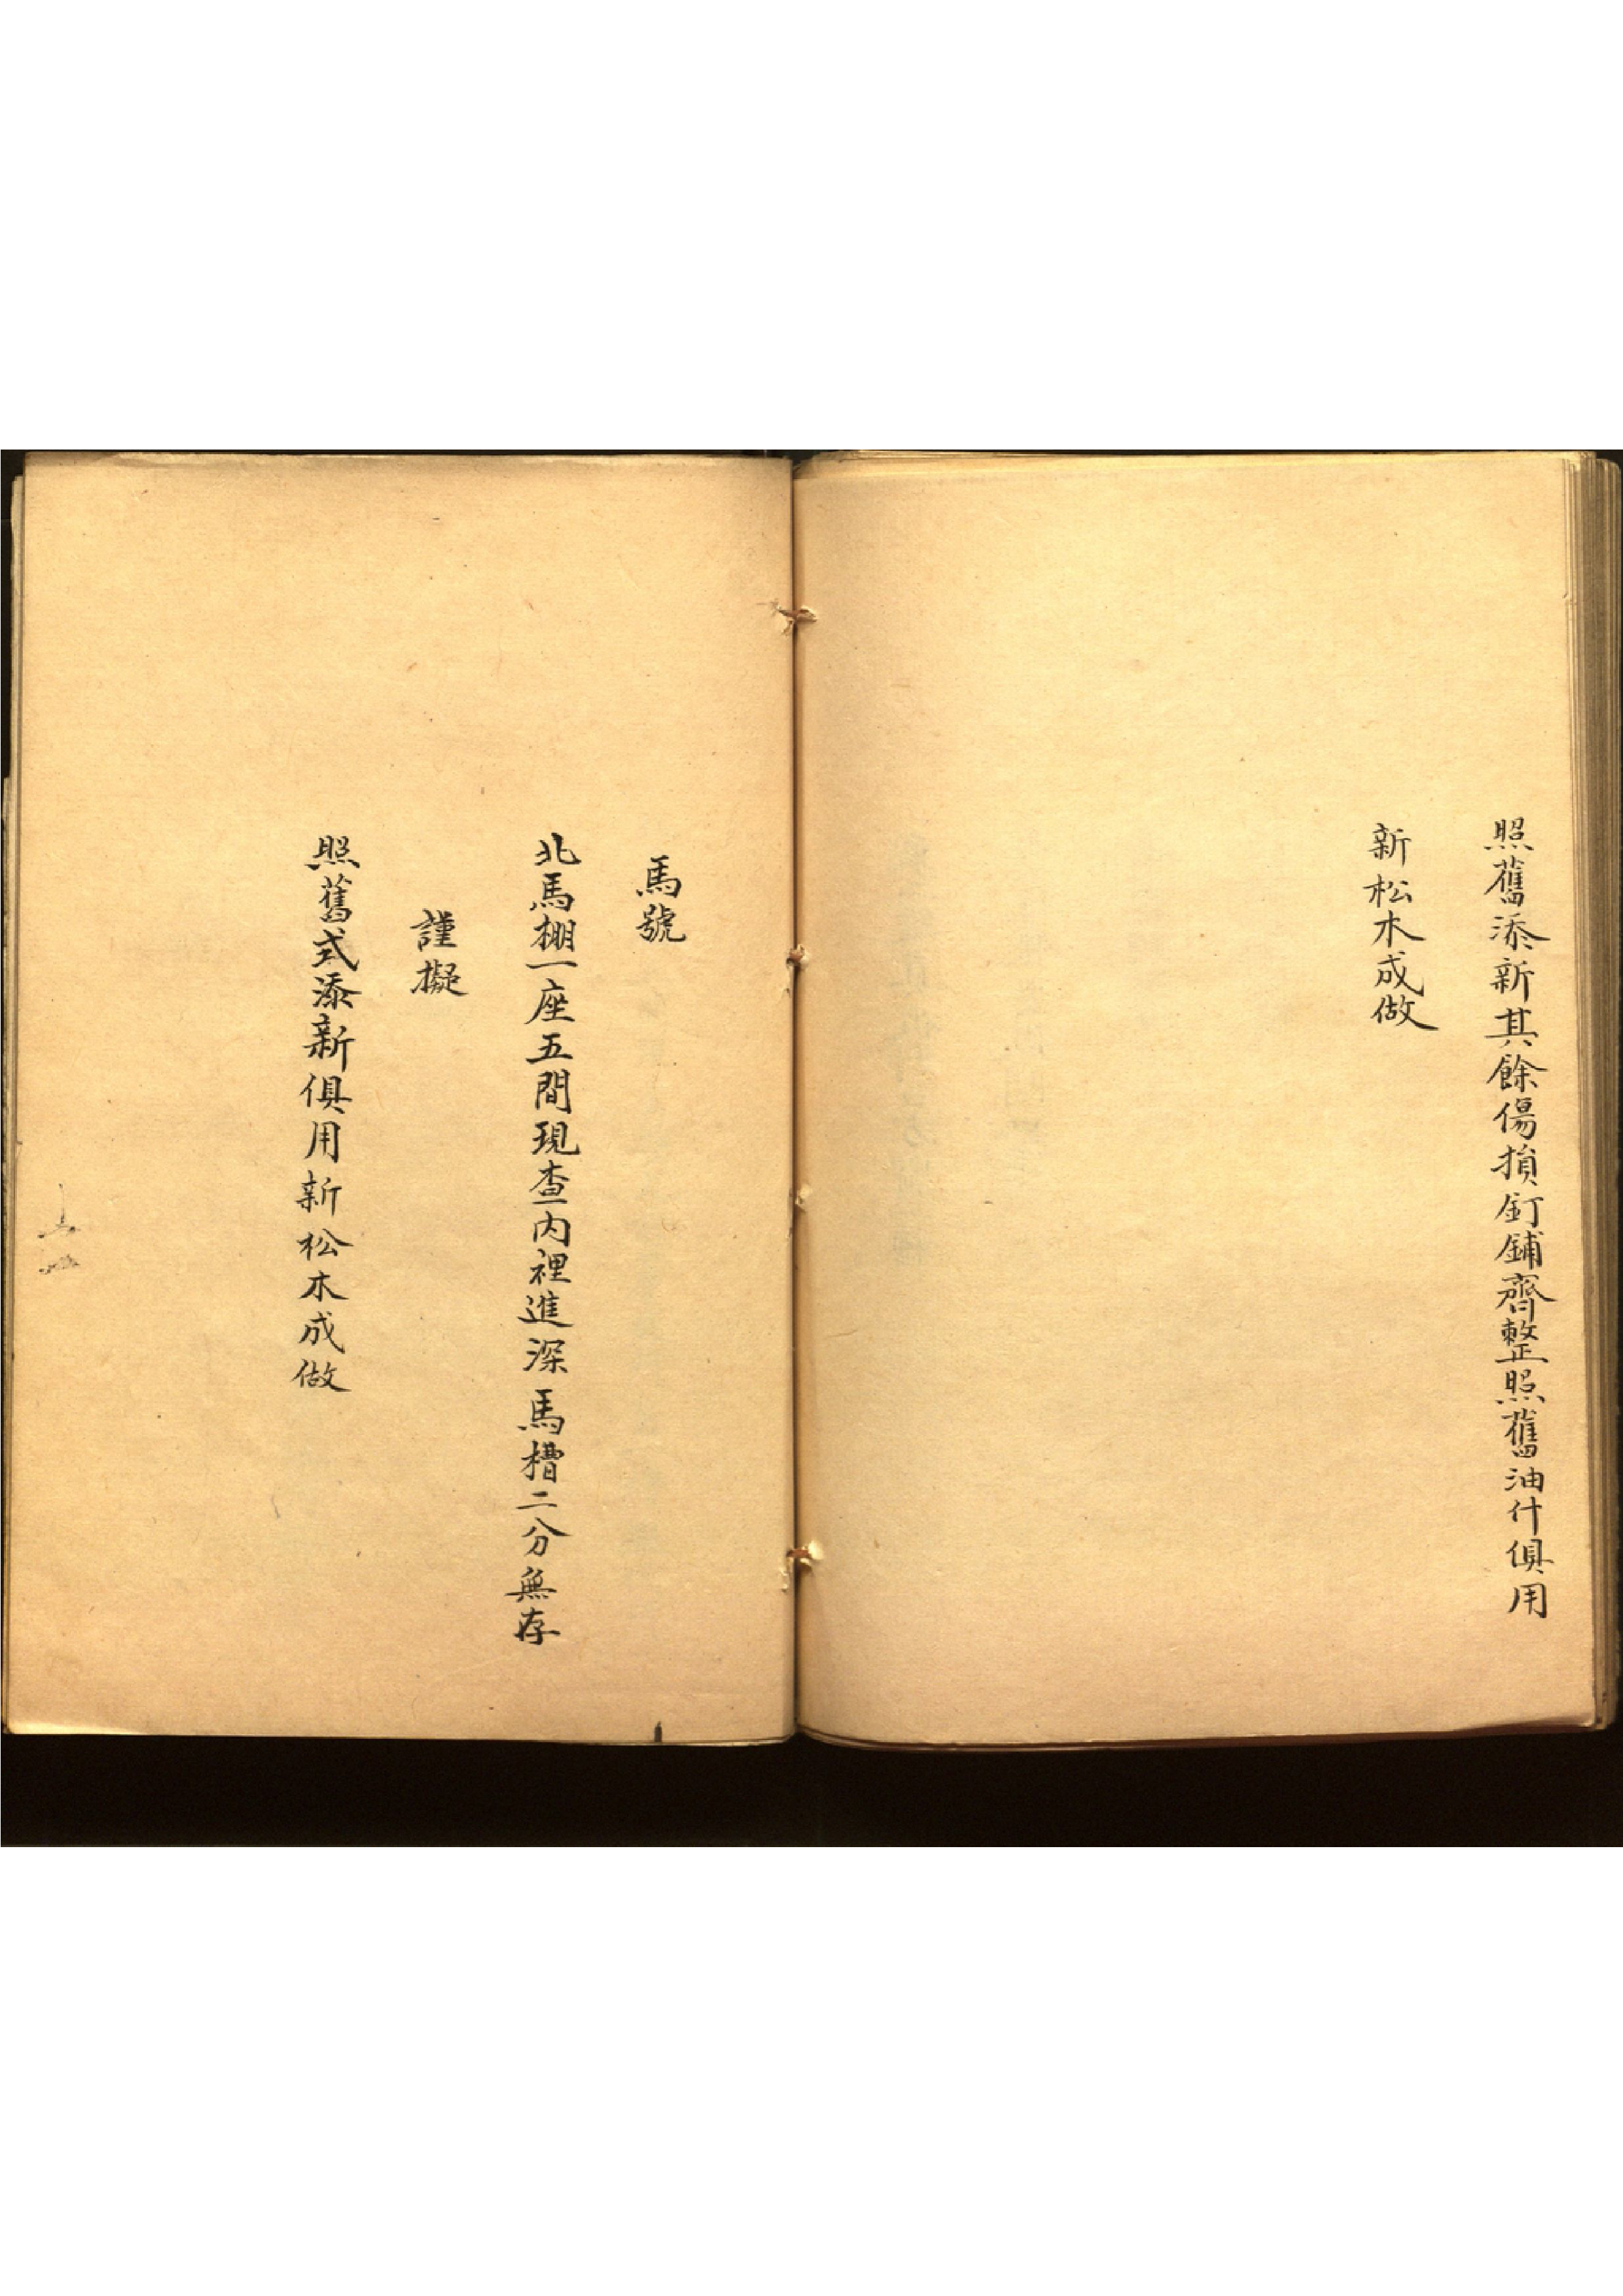 照舊添新其餘傷損釘鋪齊整照舊油什俱用
新松木成做
馬號
北馬棚一座五間現查內裡進深馬槽二分無存
謹擬
照舊式添新俱用新松木成做